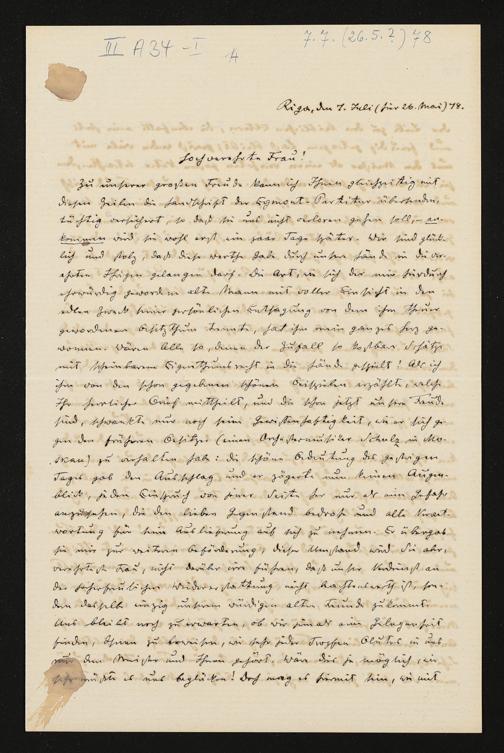 III A 34 - I
7.7. (26.5.?) 78
Riga, den 7. Juli (für 26. Mai) 78.
Hochverehrte Frau!
Zu unserer großen Freude kann ich Ihnen gleichzeitig mit
diesen Zeilen die Handschrift der Egmont-Partitur übersenden,
tüchtig versichert, so daß sie uns nicht verloren gehen soll, – an-
kommen wird sie wohl erst ein paar Tage später. Wir sind glück-
lich und stolz, daß diese werthe Gabe durch unsere Hände in die ver-
ehrten Ihrigen gelangen darf. Die Art, in sich der mir hierdurch
ehrwürdig gewordene alte Mann mit voller Einsicht in den
edlen Zweck seiner persönlichen Entsagung von dem ihm theuer
gewordenen Besitzthum trennte, hat ihm mein ganzes Herz ge-
wonnen. Wären Alle so, denen der Zufall so kostbare Schätze
mit scheinbarem Eigenthumsrecht in die Hände gespielt! Als ich
ihm von den schon gegebenen schönen Beispielen erzählte, welche
Ihr herrlicher Brief mittheilt, und die schon jetzt unsere Freude
sind, schwankte nur noch seine Gewissenhaftigkeit, wie er sich ge-
gen den früheren Besitzer (einen Orchestermusiker Schulz in Mo-
skau) zu verhalten habe: die schöne Bedeutung des gestrigen
Tages gab den Ausschlag und er zögerte nun keinen Augen-
blick, jeden Einspruch von seiner Seite her nur als eine Gefahr
anzusehen, die den lieben Gegenstand bedrohe und alle Verant-
wortung für seine Auslieferung auf sich zu nehmen. Er übergab
sie mir zur weiteren Beförderung, dieser Umstand wird Sie aber,
verehrteste Frau, nicht darüber irre führen, daß unser Verdienst an
der Wiedererstattung nicht beachtenswerth ist, son-
dern dasselbe einzig unserem würdigen alten Freunde zukommt.
Uns bleibt noch zu erwarten, ob wir jemals eine Gelegenheit
finden, Ihnen zu beweisen, wie sehr jeder Tropfen Blutes in uns
nur dem Meister und Ihnen gehört. Wäre dies je möglich, wie
sehr müßte es uns beglücken! Doch mag es hiermit sein, wie mit